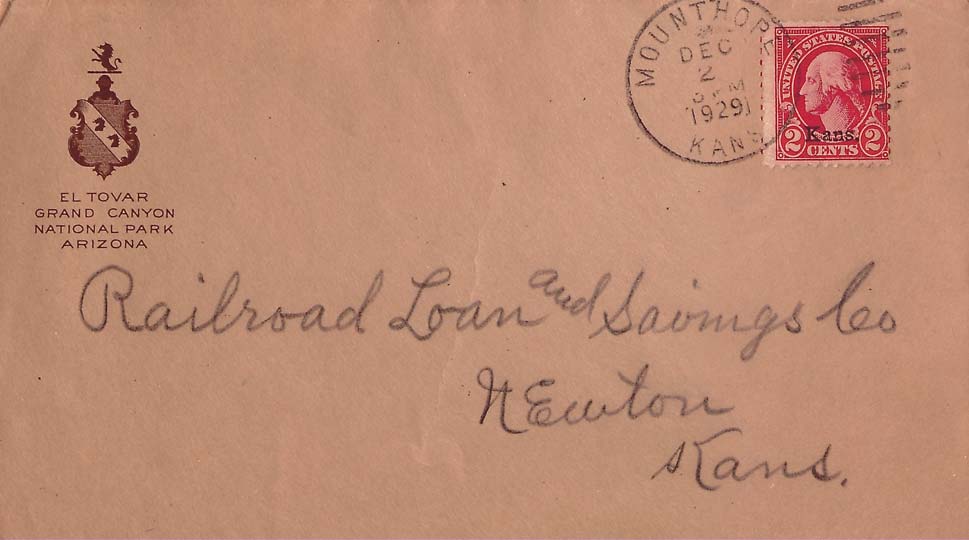 EL TOVAR
GRAND CANYON
NATIONAL PARK
ARIZONA
MOUNT HOPE
DEC
2
PM
1929
KANS
UNITED STATES POSTAGE
Kans.
2 CENTS 2
Railroad Loan and Savings Co
NEwton
Kans.